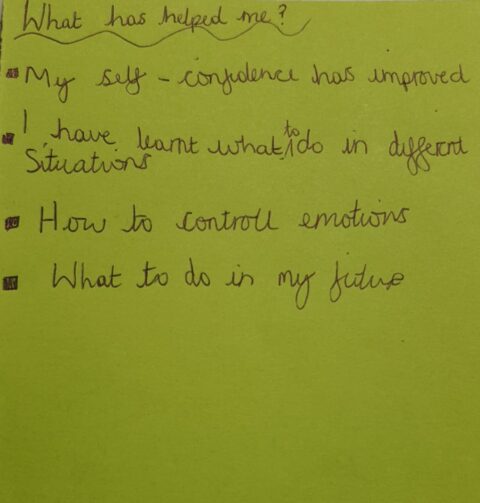 What has helped me?
My self-confidence has improved
I have learnt what to do in different
Situations
How to controll emotions
What to do in my future